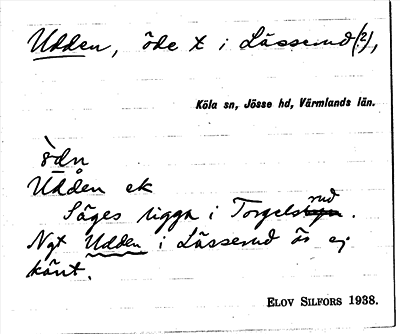 Udden, öde t i Lässerud(?),
Köla sn, Jösse hd, Värmlands län.
`ødn
Udden ek
Säges ligga i Torgelsrud.
Ngt Udden i Lässerud är ej
känt.
ELOV SILFORS 1938.